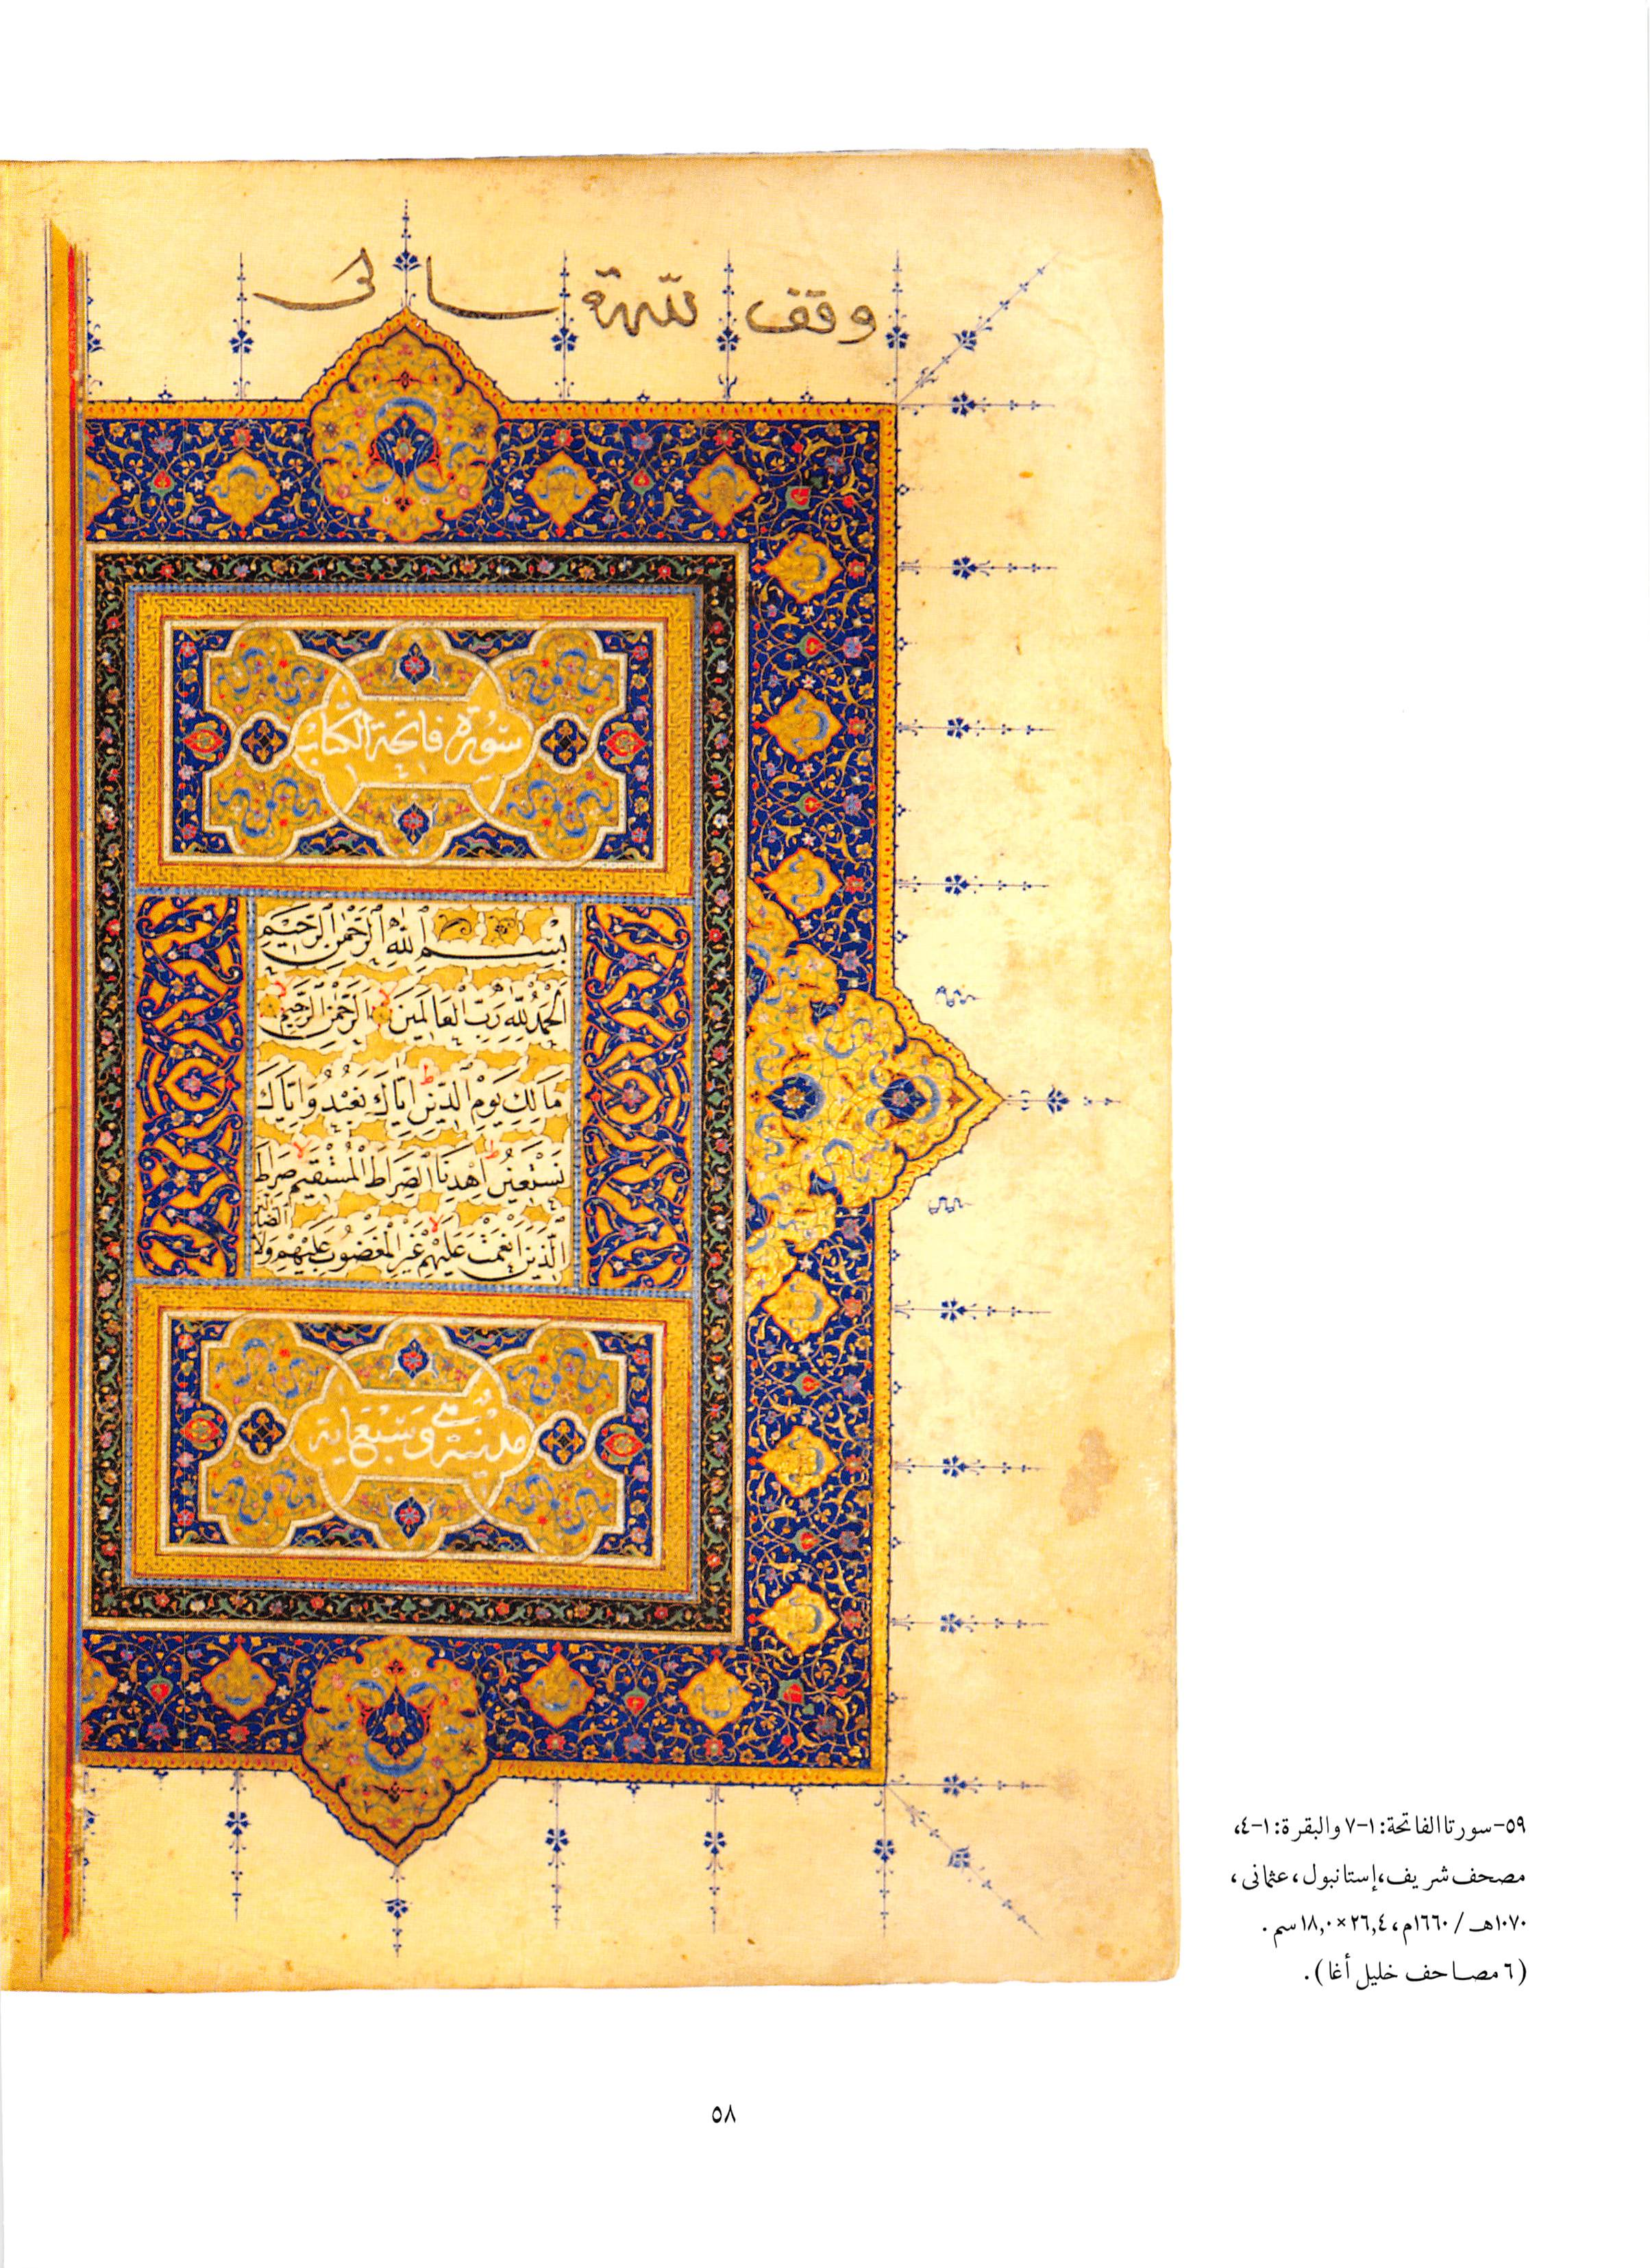 وقف لله تعالى
سورة فاتحة الكتاب
بِسْمِ اللّٰهِ الرَّحْمٰنِ الرَّحِيمِ
اَلْحَمْدُ لِلّٰهِ رَبِّ الْعَالَمِينَ لا الرَّحْمٰنِ الرَّحِيمِ لا
مَالِكِ يَوْمِ الدِّينِ ط اِيَّاكَ نَعْبُدُ وَاِيَّاكَ
نَسْتَعِينُ ط اِهْدِنَا الصِّرَاطَ الْمُسْتَقِيمَ لا صِرَاطَ
الَّذِينَ اَنْعَمْتَ عَلَيْهِمْ لا غَيْرِ الْمَغْضُوبِ عَلَيْهِمْ وَلَا الضَّالِّينَ
مدنية وهي سبع اية
٥٩-سورتا الفاتحة: ١-٧ والبقرة: ١-٤،
مصحف شريف، إستانبول، عثمانى،
١٠٧٠هـ / ١٦٦٠م، ٢٦,٤ × ١٨,٠ سم.
(٦ مصاحف خليل أغا).
٥٨